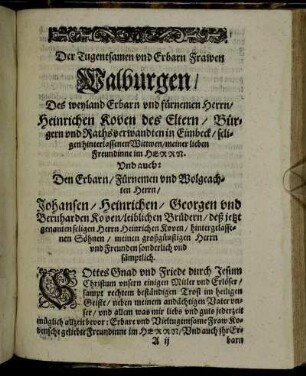 Der Tugentsamen vnd Erbarn Frawen
Walburgen/
Des weyland Erbarn vnd fürnemen Herrn/
Heinrichen Koven des Eltern/ Bür-
gern vnd Rathsverwandten in Eimbeck/ seli-
gen hinterlassener Wittwen/ meiner lieben
Freundinne im HERRN.
Vnd auch:
Den Erbarn/ Fürnemen vnd Wolgeach-
ten Herrn/
Johansen/ Heinrichen/ Georgen vnd
Bernharden Koven/ leiblichen Brüdern/ deß jetzt
genanten seligen Herrn Heinrichen Koven/ hintergelasse-
nen Söhnen/ meinen großgünstigen Herrn
vnd Freunden sonderlich vnd
sämptlich.
GOttes Gnad vnd Friede durch Jesum
Christum vnsern einigen Mitler vnd Erlöser/
sampt rechtem beständigen Trost im heiligen
Geiste/ neben meinem andächtigen Vater vn-
ser/ vnd allem was mir liebs vnd guts jederzeit
müglich allzeit bevor: Erbare vnd Vieltugentsame Fraw Ko-
vensche geliebte Freundinne im HERRN/ Vnd auch jhr Er-
A ij barn